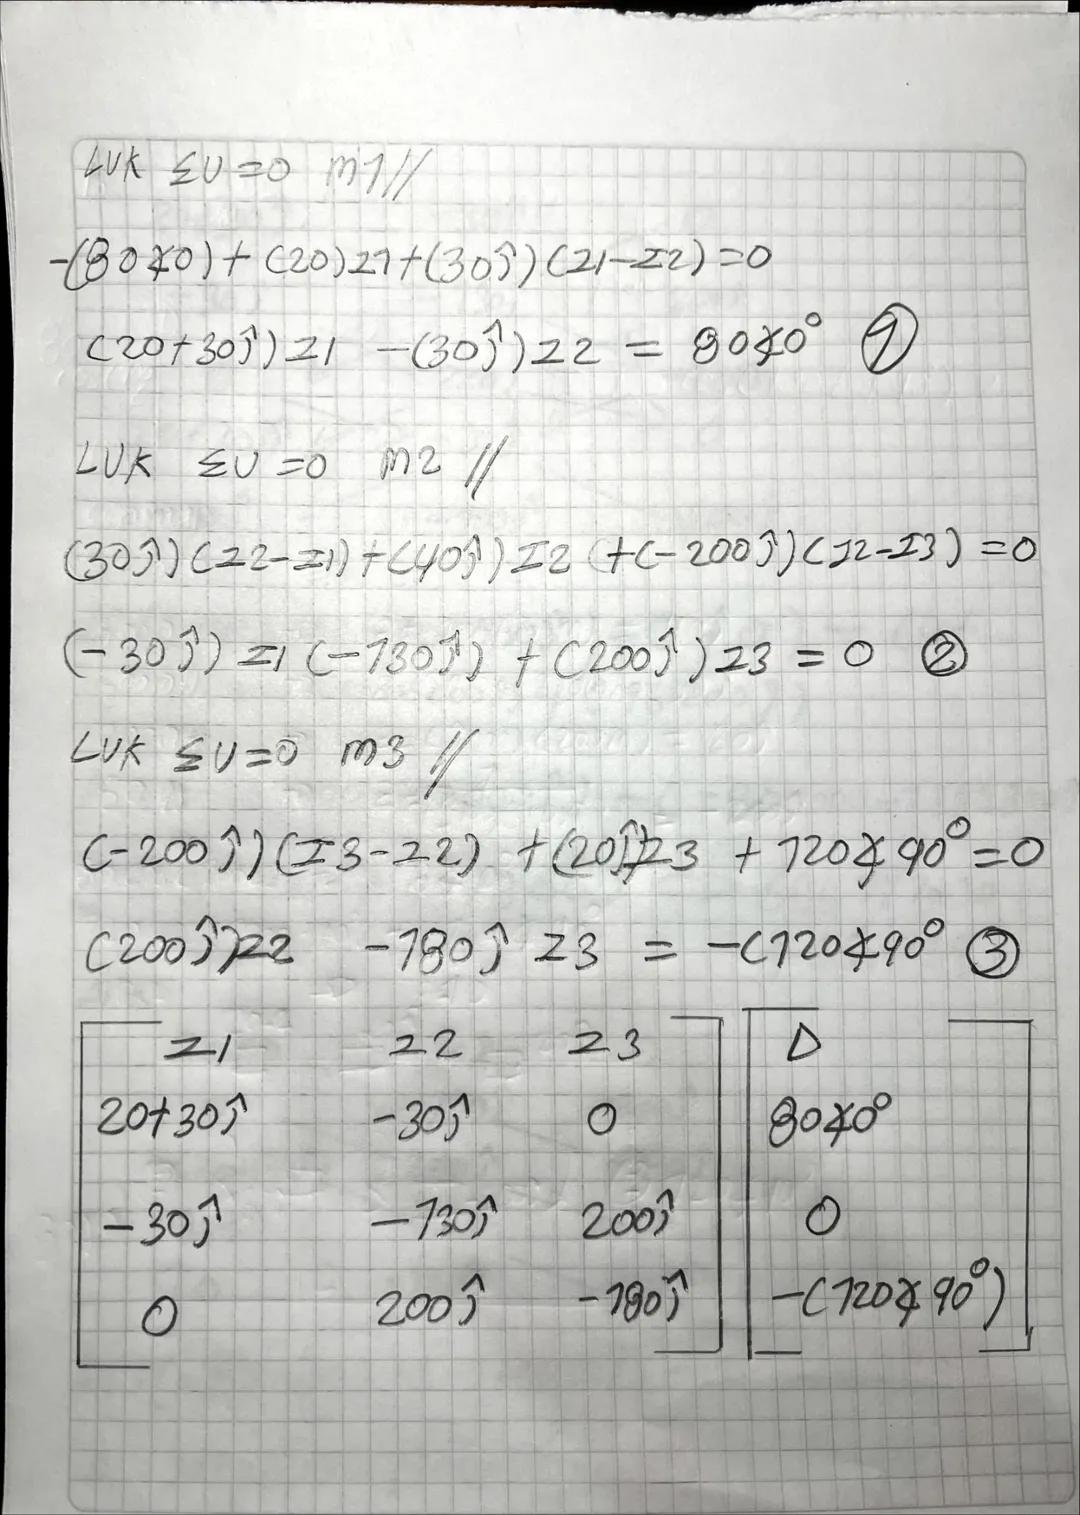 LVK ΣV=0 m1//
-(80∡0)+(20)I1+(30ĵ)(I1-I2)=0
(20+30ĵ)I1 -(30ĵ)I2 = 80∡0° ①
LVK ΣV=0 m2 //
(30ĵ)(I2-I1)+(40ĵ)I2 (+(-200ĵ)(I2-I3)=0
(-30ĵ)I1(-130ĵ) +(200ĵ)I3=0 ②
LVK ΣV=0 m3 //
(-200ĵ)(I3-I2) +(20ĵ)I3 + 120∡90°=0
(200ĵ)I2 -180ĵ I3 = -(120∡90° ③
I1 I2 I3 D
20+30ĵ -30ĵ 0 80∡0°
-30ĵ -130ĵ 200ĵ 0
0 200ĵ -180ĵ -(120∡90°)